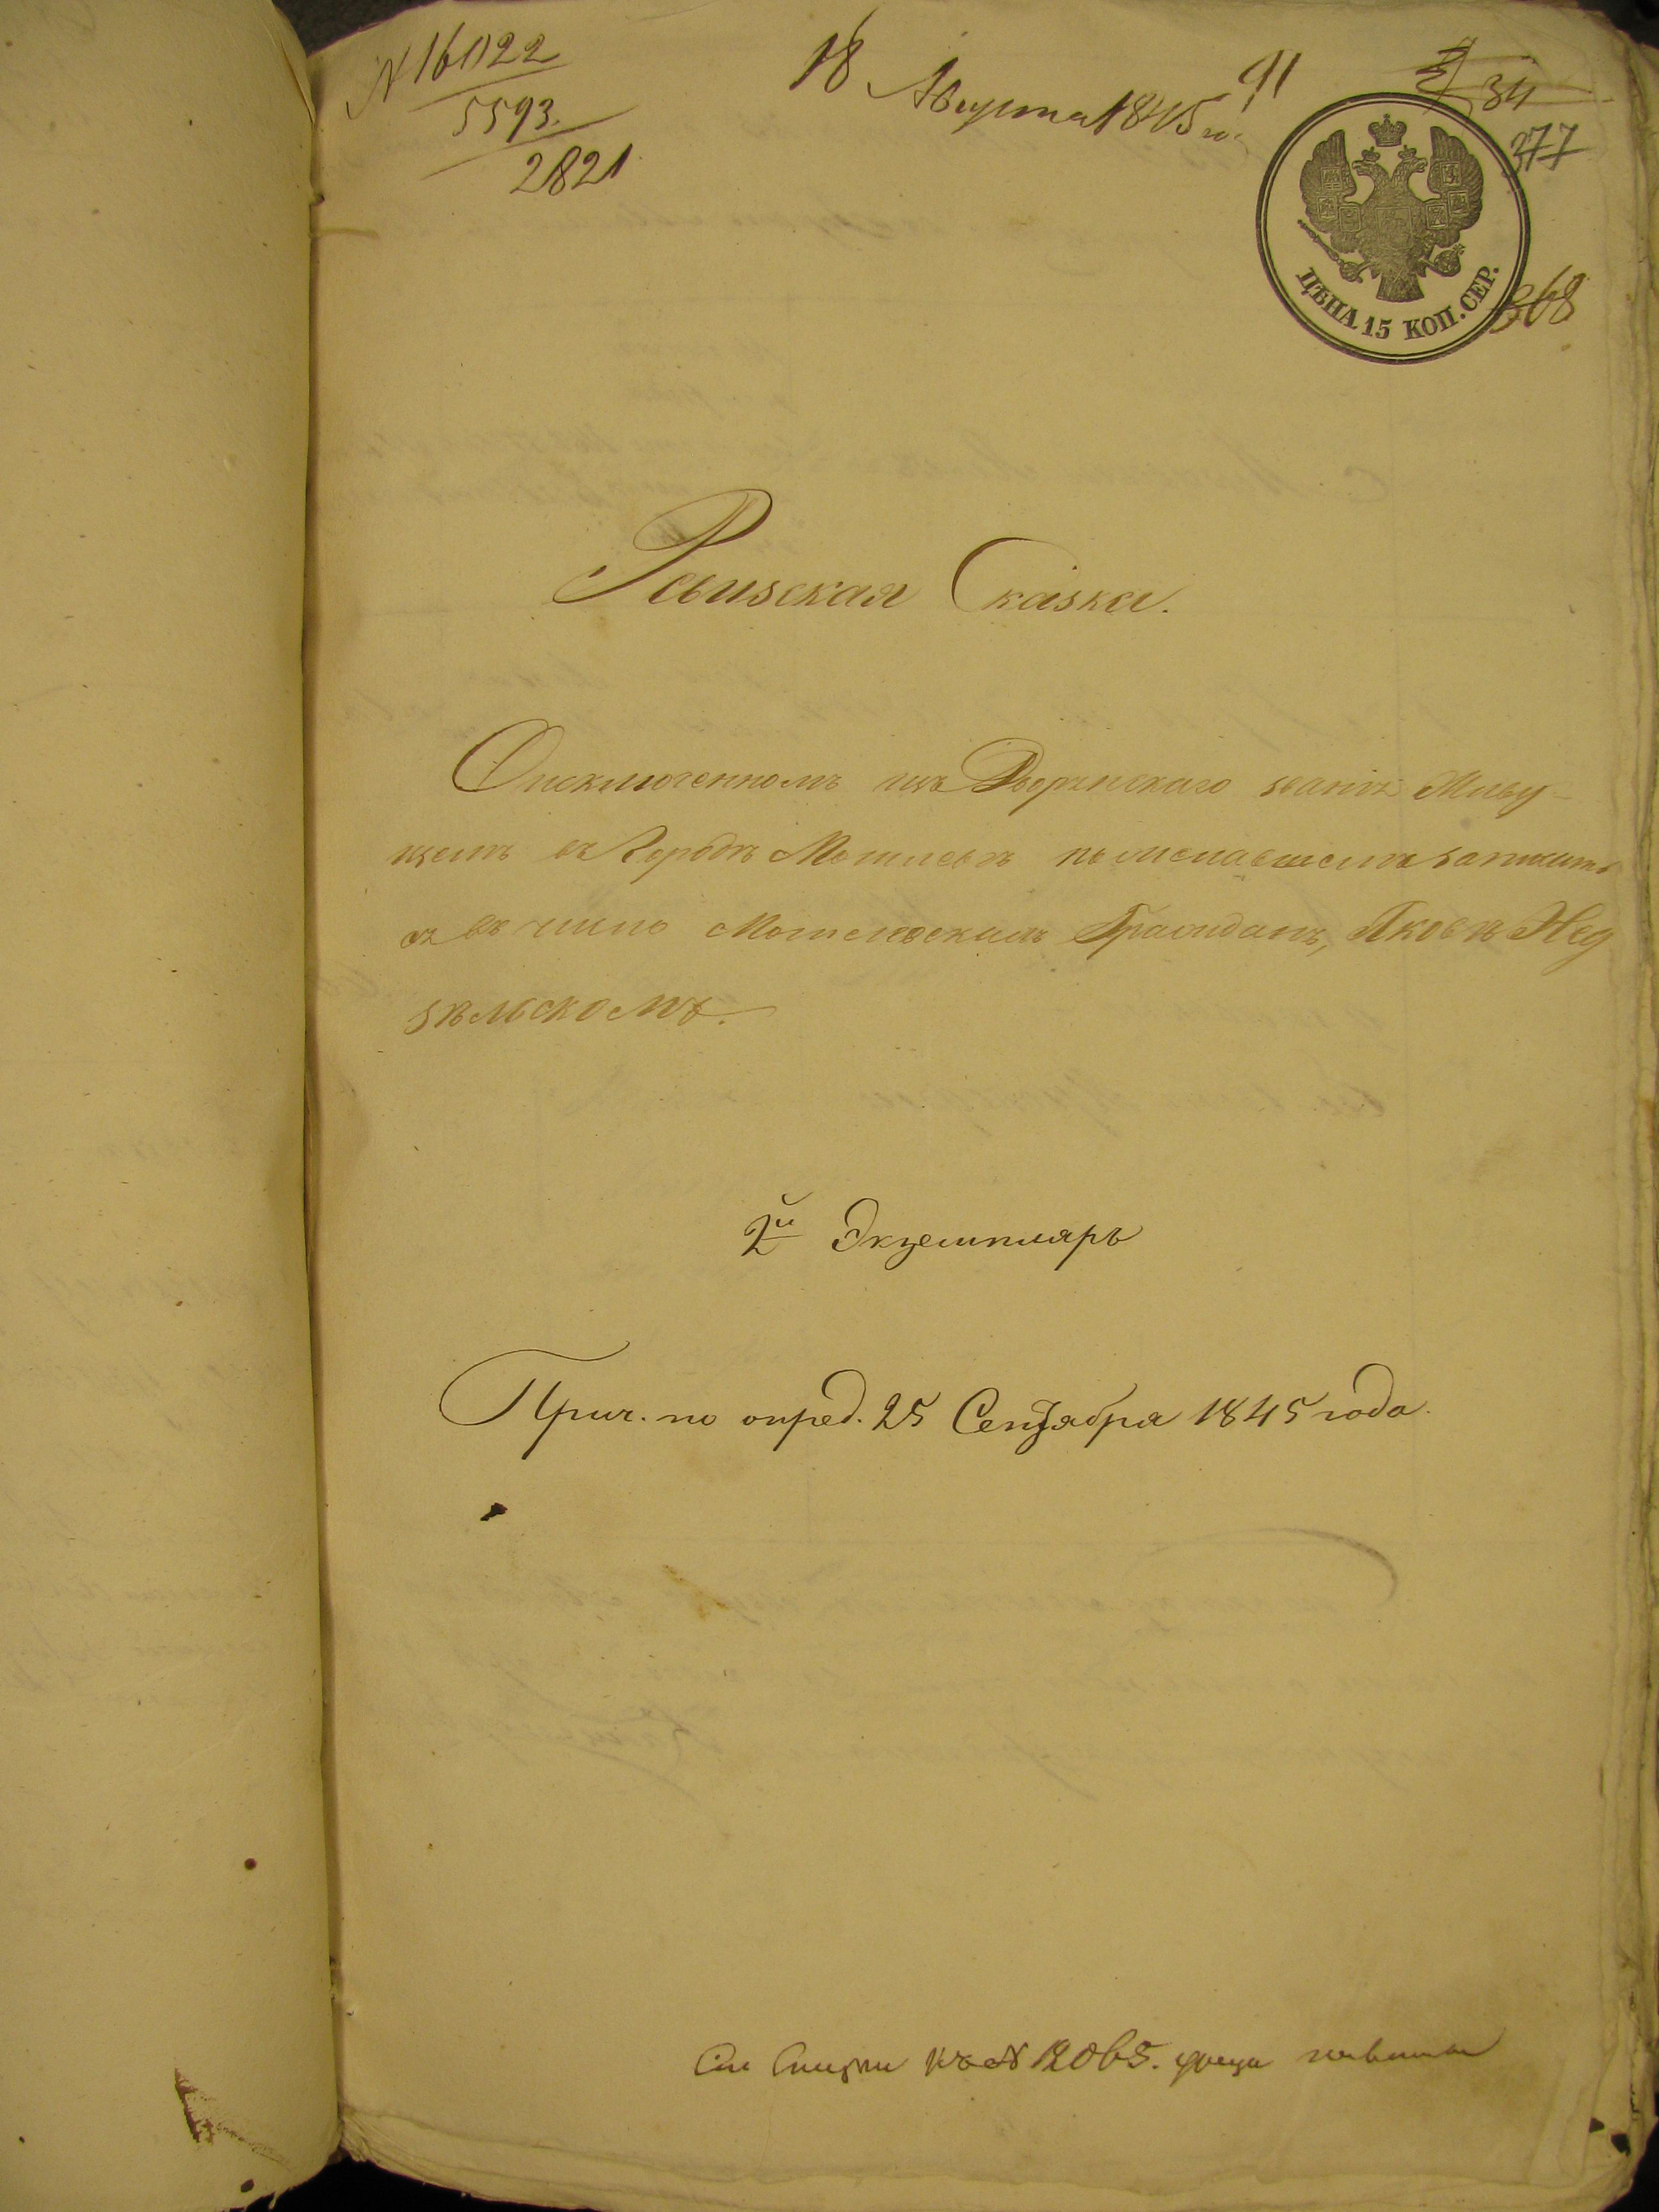 N 16022
5593.
2821
18 Августа 1845 го
91
34
377
368
ЦѢНА 15 КОП. СЕР.
Ревизская Сказка.
Оисключенномъ изъ Дворянскаго званія Живу-
щемъ въ Городѣ Могилевѣ пожелавшемъ записать
ся въ число Могилевскихъ Гражданъ, Яковѣ Нед
зѣльскомъ.
2й Экземпляръ
Прич. по опред. 25 Сентября 1845 года.
къ N 12065.